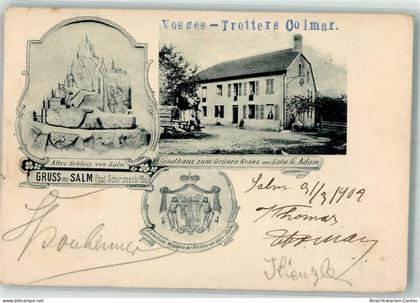 Vosges - Trotters Colmar.
Altes Schloss von Salm
Gasthaus zum Grünen Kranz von Salm G. Adam
GRUSS aus SALM Post Schirmeck i/Els.
Salm 31/3 1902
Thomas
Kienzle
www.ansichtskarten-center.de
Ansichtskarten-Center